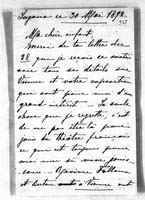 Lugano ce 30 Mai 1892.
Ma chère enfant,
Merci de ta lettre du
28 que je reçois ce matin
avec tous ses détails sur
Vienne et votre exposition
qui sont pour moi d'un
grand intérêt. La seule
chose que je regrette, c'est
de ne pas être là pour
jouir du théâtre français
qui est toujours pour
moi une si vive jouis-
sance.
et à Vienne ont